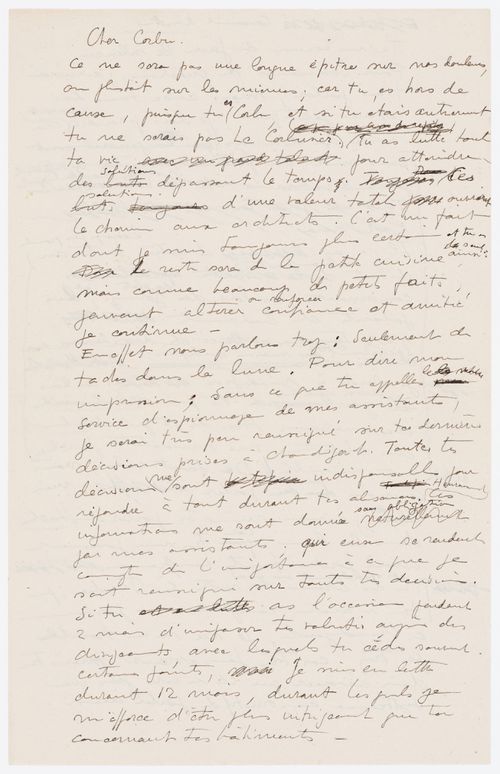 Cher Corbu.
Ce ne sera pas une longue épître sur nos douleurs,
ou plutôt sur les miennes; car tu es hors de
cause, puisque tu es Corbu, et si tu étais autrement
tu ne serais pas Le Corbusier. Tu as lutté toute
ta vie pour atteindre
des solutions dépassant le temps; Ces
solutions d'une valeur totale ouvrirent
le chemin aux architects. C'est un fait
dont je suis toujours plus certain et tu es le seul ainsi.
Le reste sera de la petite cuisine
mais comme beaucoup de petits faits,
peuvent altérer ou renforcer confiance et amitié
je continue –
En effet nous parlons trop; Seulement de
ta clés dans la lune. Pour dire mon
impression; Sans ce que tu appelles le
service d'espionnage de mes assistants,
je serai très peu renseigné sur tes dernières
décisions prises à Chandigarh. Toutes tes
décisions me sont indispensables pour
répondre à tout durant tes absences. Ces
informations me sont données sans obligation naturellement
par mes assistants. qui eux se rendent
compte de l'importance à ce que je
sois renseigné sur toutes tes décisions.
Si tu as l'occasion pendant
2 mois d'imposer tes volontés auprès des
dirigeants avec lesquels tu cèdes souvent
certains points, je suis en lutte
durant 12 mois, durant lesquels je
m'efforce d'être plus intrigeant que toi
concernant tes bâtiments –